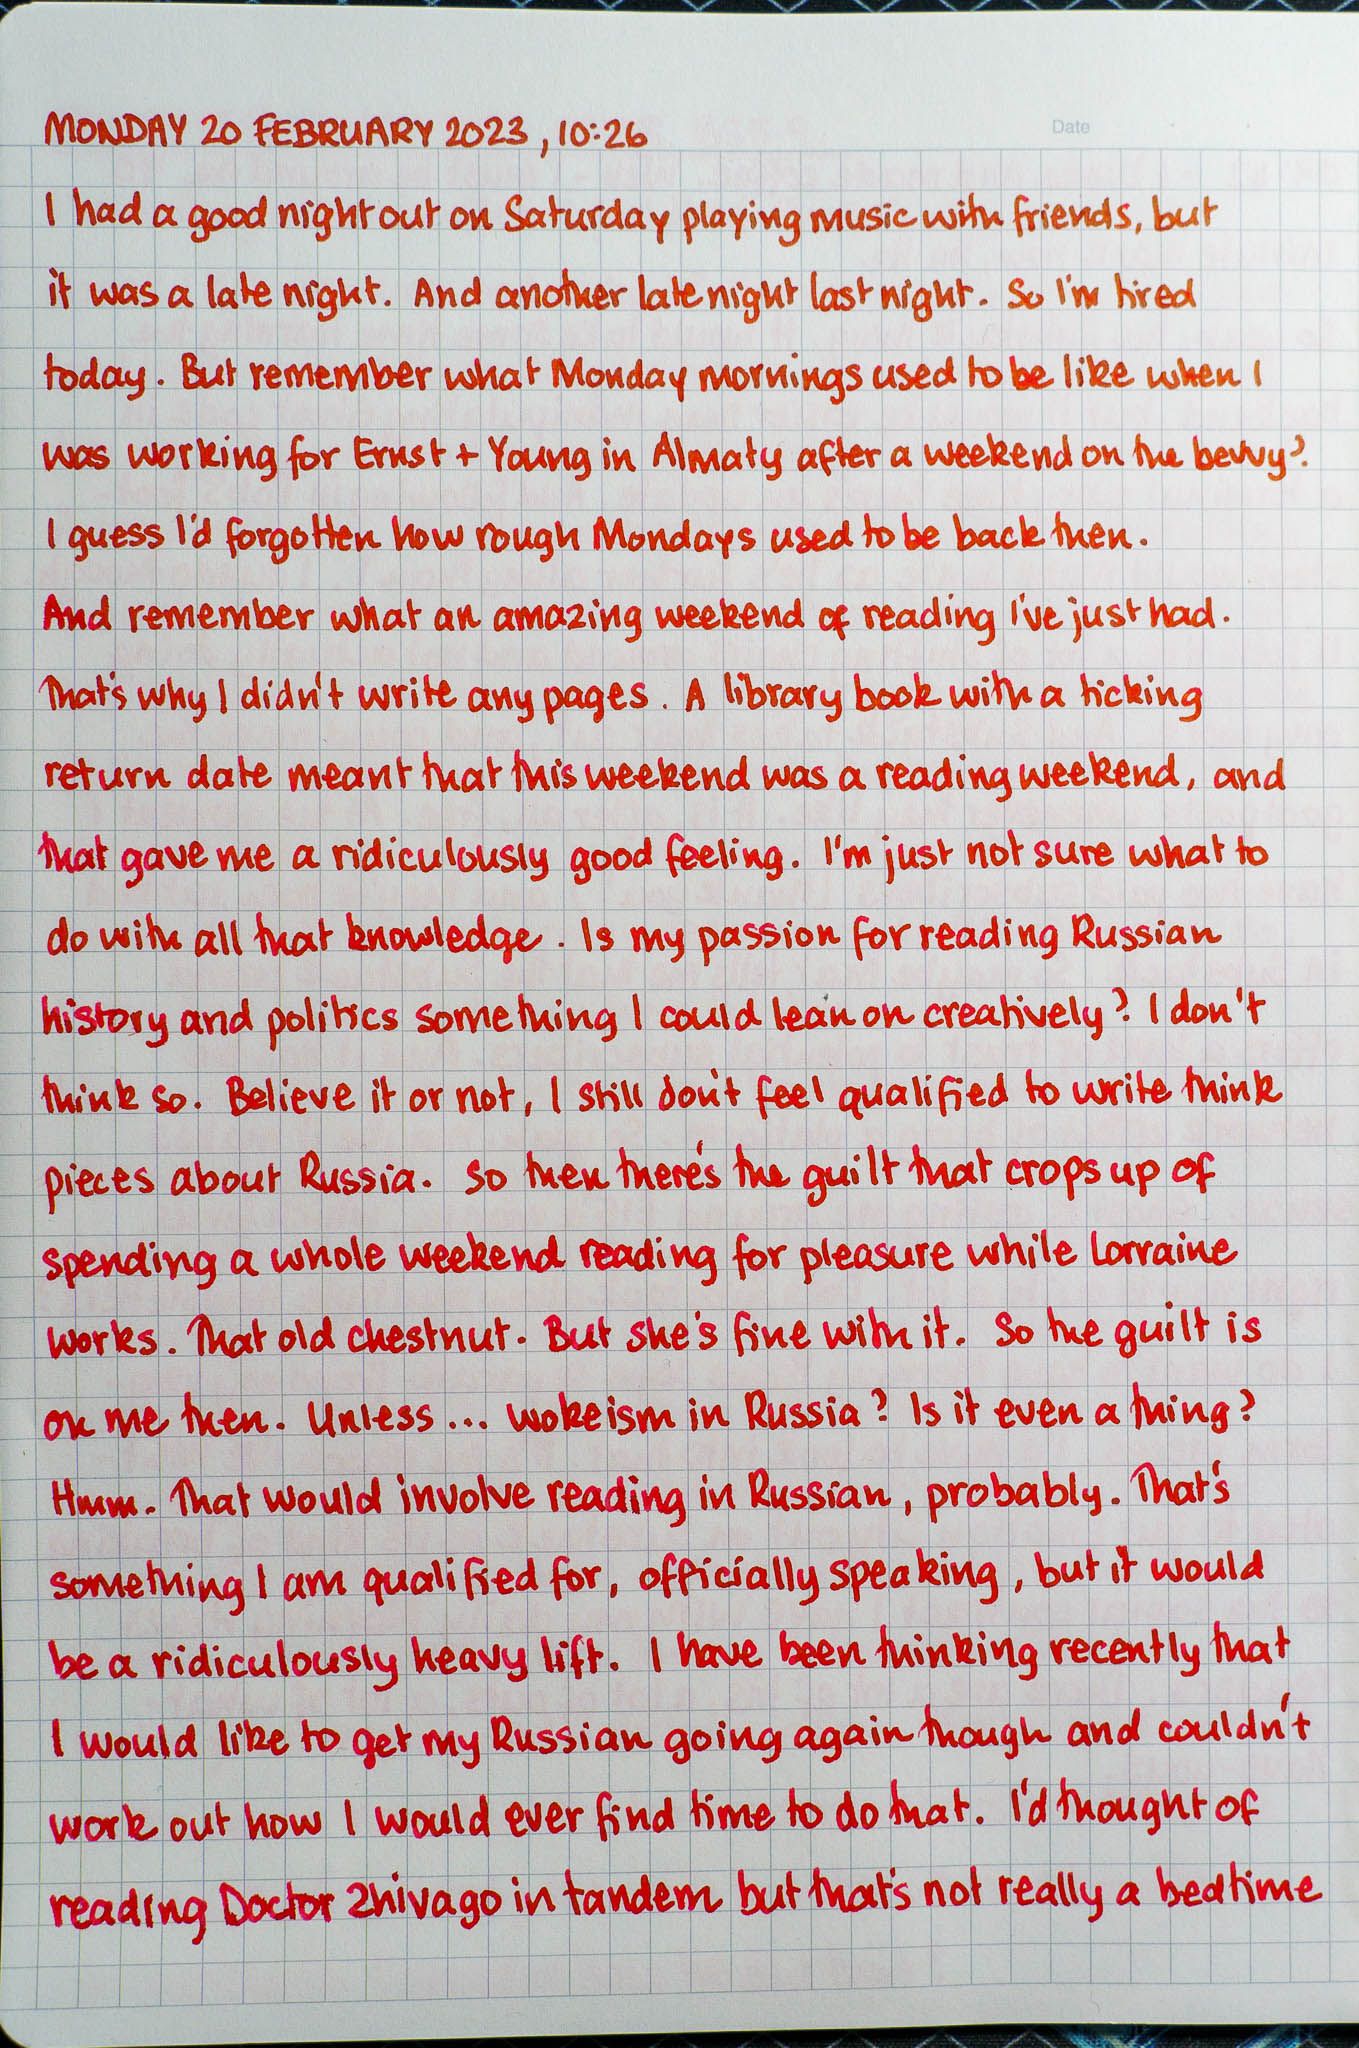 Date
MONDAY 20 FEBRUARY 2023, 10:26
I had a good night out on Saturday playing music with friends, but
it was a late night. And another late night last night. So I'm tired
today. But remember what Monday mornings used to be like when I
was working for Ernst + Young in Almaty after a weekend on the bevvy?
I guess I'd forgotten how rough Mondays used to be back then.
And remember what an amazing weekend of reading I've just had.
That's why I didn't write any pages. A library book with a ticking
return date meant that this weekend was a reading weekend, and
that gave me a ridiculously good feeling. I'm just not sure what to
do with all that knowledge. Is my passion for reading Russian
history and politics something I could lean on creatively? I don't
think so. Believe it or not, I still don't feel qualified to write think
pieces about Russia. So then there's the guilt that crops up of
spending a whole weekend reading for pleasure while Lorraine
works. That old chestnut. But she's fine with it. So the guilt is
on me then. Unless... wokeism in Russia? Is it even a thing?
Hmm. That would involve reading in Russian, probably. That's
something I am qualified for, officially speaking, but it would
be a ridiculously heavy lift. I have been thinking recently that
I would like to get my Russian going again though and couldn't
work out how I would ever find time to do that. I'd thought of
reading Doctor Zhivago in tandem but that's not really a bedtime